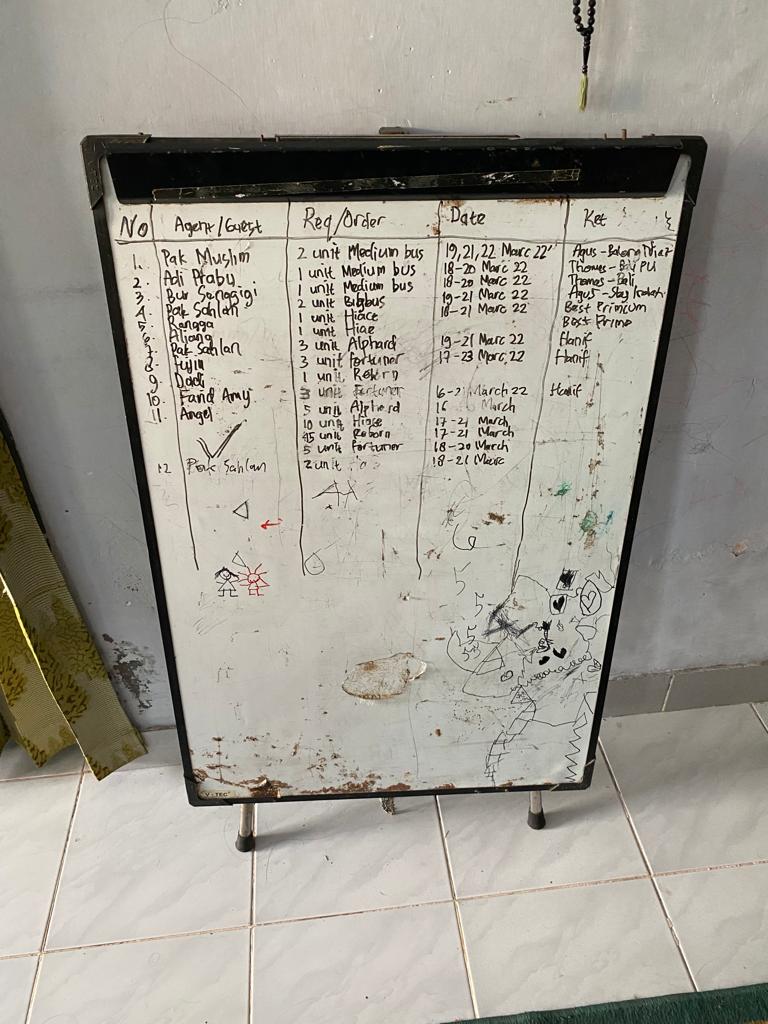 No Agent/Guest Req/Order Date Ket
1. Pak Muslim 2 unit Medium bus 19, 21, 22 Marc 22' Agus -
2. Adi 1 unit Medium bus 18-20 Marc 22 Thomas -
3. Bur 1 unit Medium bus 18-20 Marc 22 Thomas - Bali
4. Pak Sahlan 2 unit Bigbus 19-21 Marc 22 Agus -
5. Rangga 1 unit Hiace 18-21 Marc 22 Best Primium
6 1 unit Hiace Best Prime
7 Pak Sahlan 3 unit Alphard 19-21 Marc 22 Hanif
8 3 unit Fortuner 17-23 Marc 22 Hanif
9 Dodi 1 unit Reborn
10. Farid Amy 3 unit Fortuner 16-21 March 22 Hanif
11. Angel 5 unit Alphard 16 March
10 unit Hiace 17-21 March
45 unit Reborn 17-21 March
5 unit Fortuner 18-20 March
12 Pak Sahlan 2 unit 18-21 Marc
5
5
15
5
V-TEC